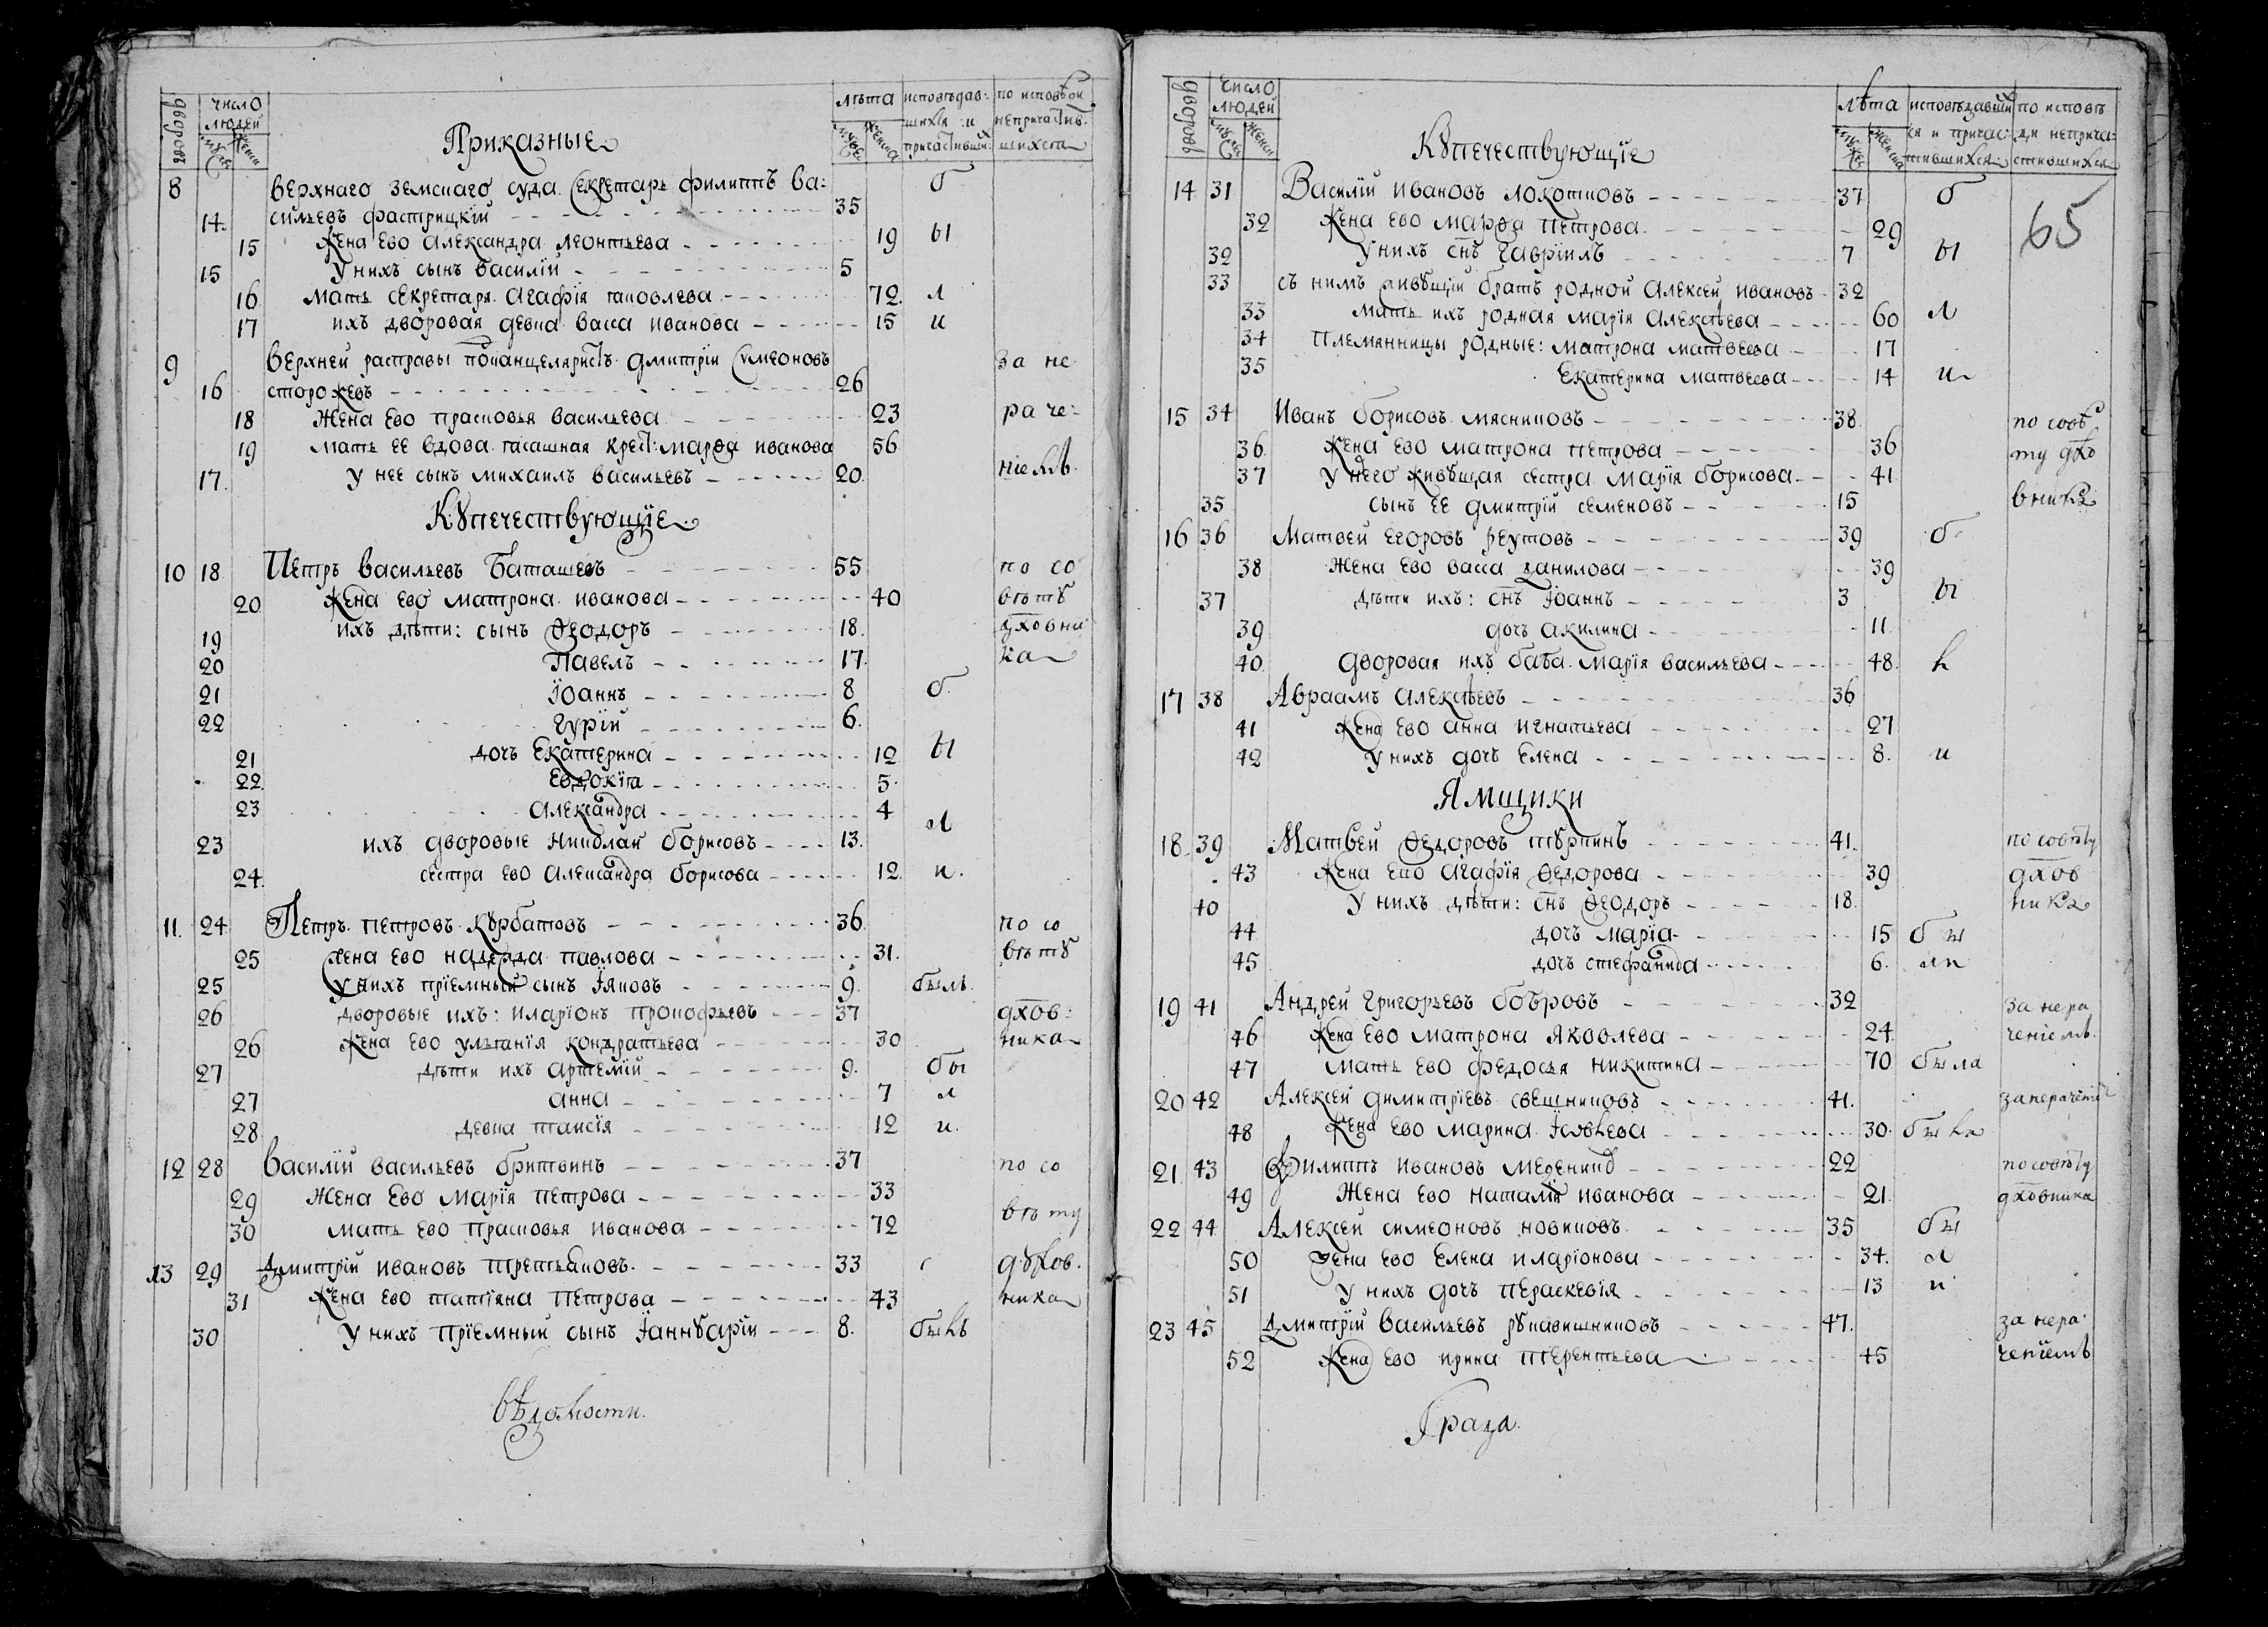 дворовъ число людей мужес женск Приказные лѣта мужес женска исповѣдавшихся и причастивших по исповѣди непричастившихся
8 верхнаго земскаго суда секретарь филиппъ ва: б
14. сильевъ фастрицкій 35
15 жена ево александра леонтьева 19 ы
15 у нихъ сынъ василій 5
16 мать секретаря агафія яковлева 72. л
17 ихъ дворовая девка васса иванова 15 и
9 верхней расправы поканцеляристъ дмитрій сумеоновъ за не
16 сторожевъ 26
18 жена ево прасковья васильева 23 раче:
19 мать ее вдова пасашная крест: марѳа иванова 56
17. у нее сынъ михаилъ васильевъ 20. ніемъ.
Кꙋпечествующіе
10 18 Петръ васильевъ Баташевъ 55 по со
20 жена ево матрона иванова 40 вѣтꙋ
19 ихъ дѣти: сынъ ѳеодоръ 18. дховни
20 Павелъ 17. ка
21 Іоаннъ 8 б.
22 гурій 6.
21 дочь Екатерина 12 ы
22. Евдокіа 5.
23 александра 4 л
23 ихъ дворовые николай борисовъ 13.
24. сестра ево александра борисова 12. и.
11. 24 Петръ петровъ кꙋрбатовъ 36. по со
25 жена ево надежда павлова 31. вѣтꙋ
25 у нихъ пріемный сынъ Іяковъ 9. былъ.
26 дворовые ихъ: иларіонъ прокофьевъ 37 дхов:
26 жена ево ульянія кондратьева 30 ника
27 дѣти ихъ артемій 9. бы
27 анна 7 л
28 девка таисія 12 и.
12 28 василій васильевъ бритвинъ 37 по со
29 жена ево марія петрова 33
30 мать ево прасковья иванова 72 вѣту
13 29 дмитрій ивановъ третьяковъ. 33 дꙋхов.
31 жена ево татіяна петрова 43 ника
30 у нихъ пріемный сынъ Іаннꙋарій 8. былъ
вѣдомости.
дворовъ число людей мужес женск Кꙋпечествующіе лѣта мужес женска исповѣдавшихся и причастившихся по исповѣди непричастившихся
14 31 Василій ивановъ локотковъ 37 б
65
32 жена ево марѳа петрова. 29
32 у нихъ снъ гавріилъ 7 ы
33 съ нимъ живꙋщій братъ родной алексей ивановъ 32
33 мать ихъ родная марія алексѣева 60 л
34 племянницы родные: матрона матвеева 17
35 Екатерина матвеева 14 и
15 34 Иванъ борисовъ мясниковъ 38. по совѣ
36. жена ево матрона петрова 36 ту дхо
37 у него живꙋщая сестра марія борисова 41.
35 сынъ ее дмитрій семеновъ 15 вника
16 36 матвей егоровъ реутовъ 39 б.
38 жена ево васса данилова 39
37 дѣти ихъ: снъ Іоаннъ 3 ы
39 дочь акилина 11.
40. дворовая ихъ баба марія васильева 48. л
17 38 Авраамъ алексѣевъ 36
41 жена ево анна игнатьева 27
42 у нихъ дочь елена 8. и
Ямщики
18. 39 Матвей ѳедоровъ тꙋрпинъ 41. по совѣту
43 жена ево агафія ѳедорова 39 дхов
40 у нихъ дѣти: снъ ѳеодоръ 18. ника
44 дочь маріа 15 бы
45 дочь стефанида 6. ли
19 41 Андрей григорьевъ бобровъ 32 за нера
46 жена ево матрона яковлева 24. ченіемъ.
47 мать ево федосья никитина 70 была
20 42 Алексей димитріевъ свешниковъ 41. за нераченіе
48 жена ево марина Іевлева 30. была
21. 43 Филиппъ ивановъ 22 по совѣту
49 жена ево наталія иванова 21. дховника
22 44 Алексей симеоновъ новиковъ 35 бы
50 жена ево елена иларіонова 34. л
51 у нихъ дочь параскевія 13 и
23 45 дмитрій васильевъ рꙋкавишниковъ 47. за нера:
52 жена ево ирина терентьева 45 ченіемъ
Града.